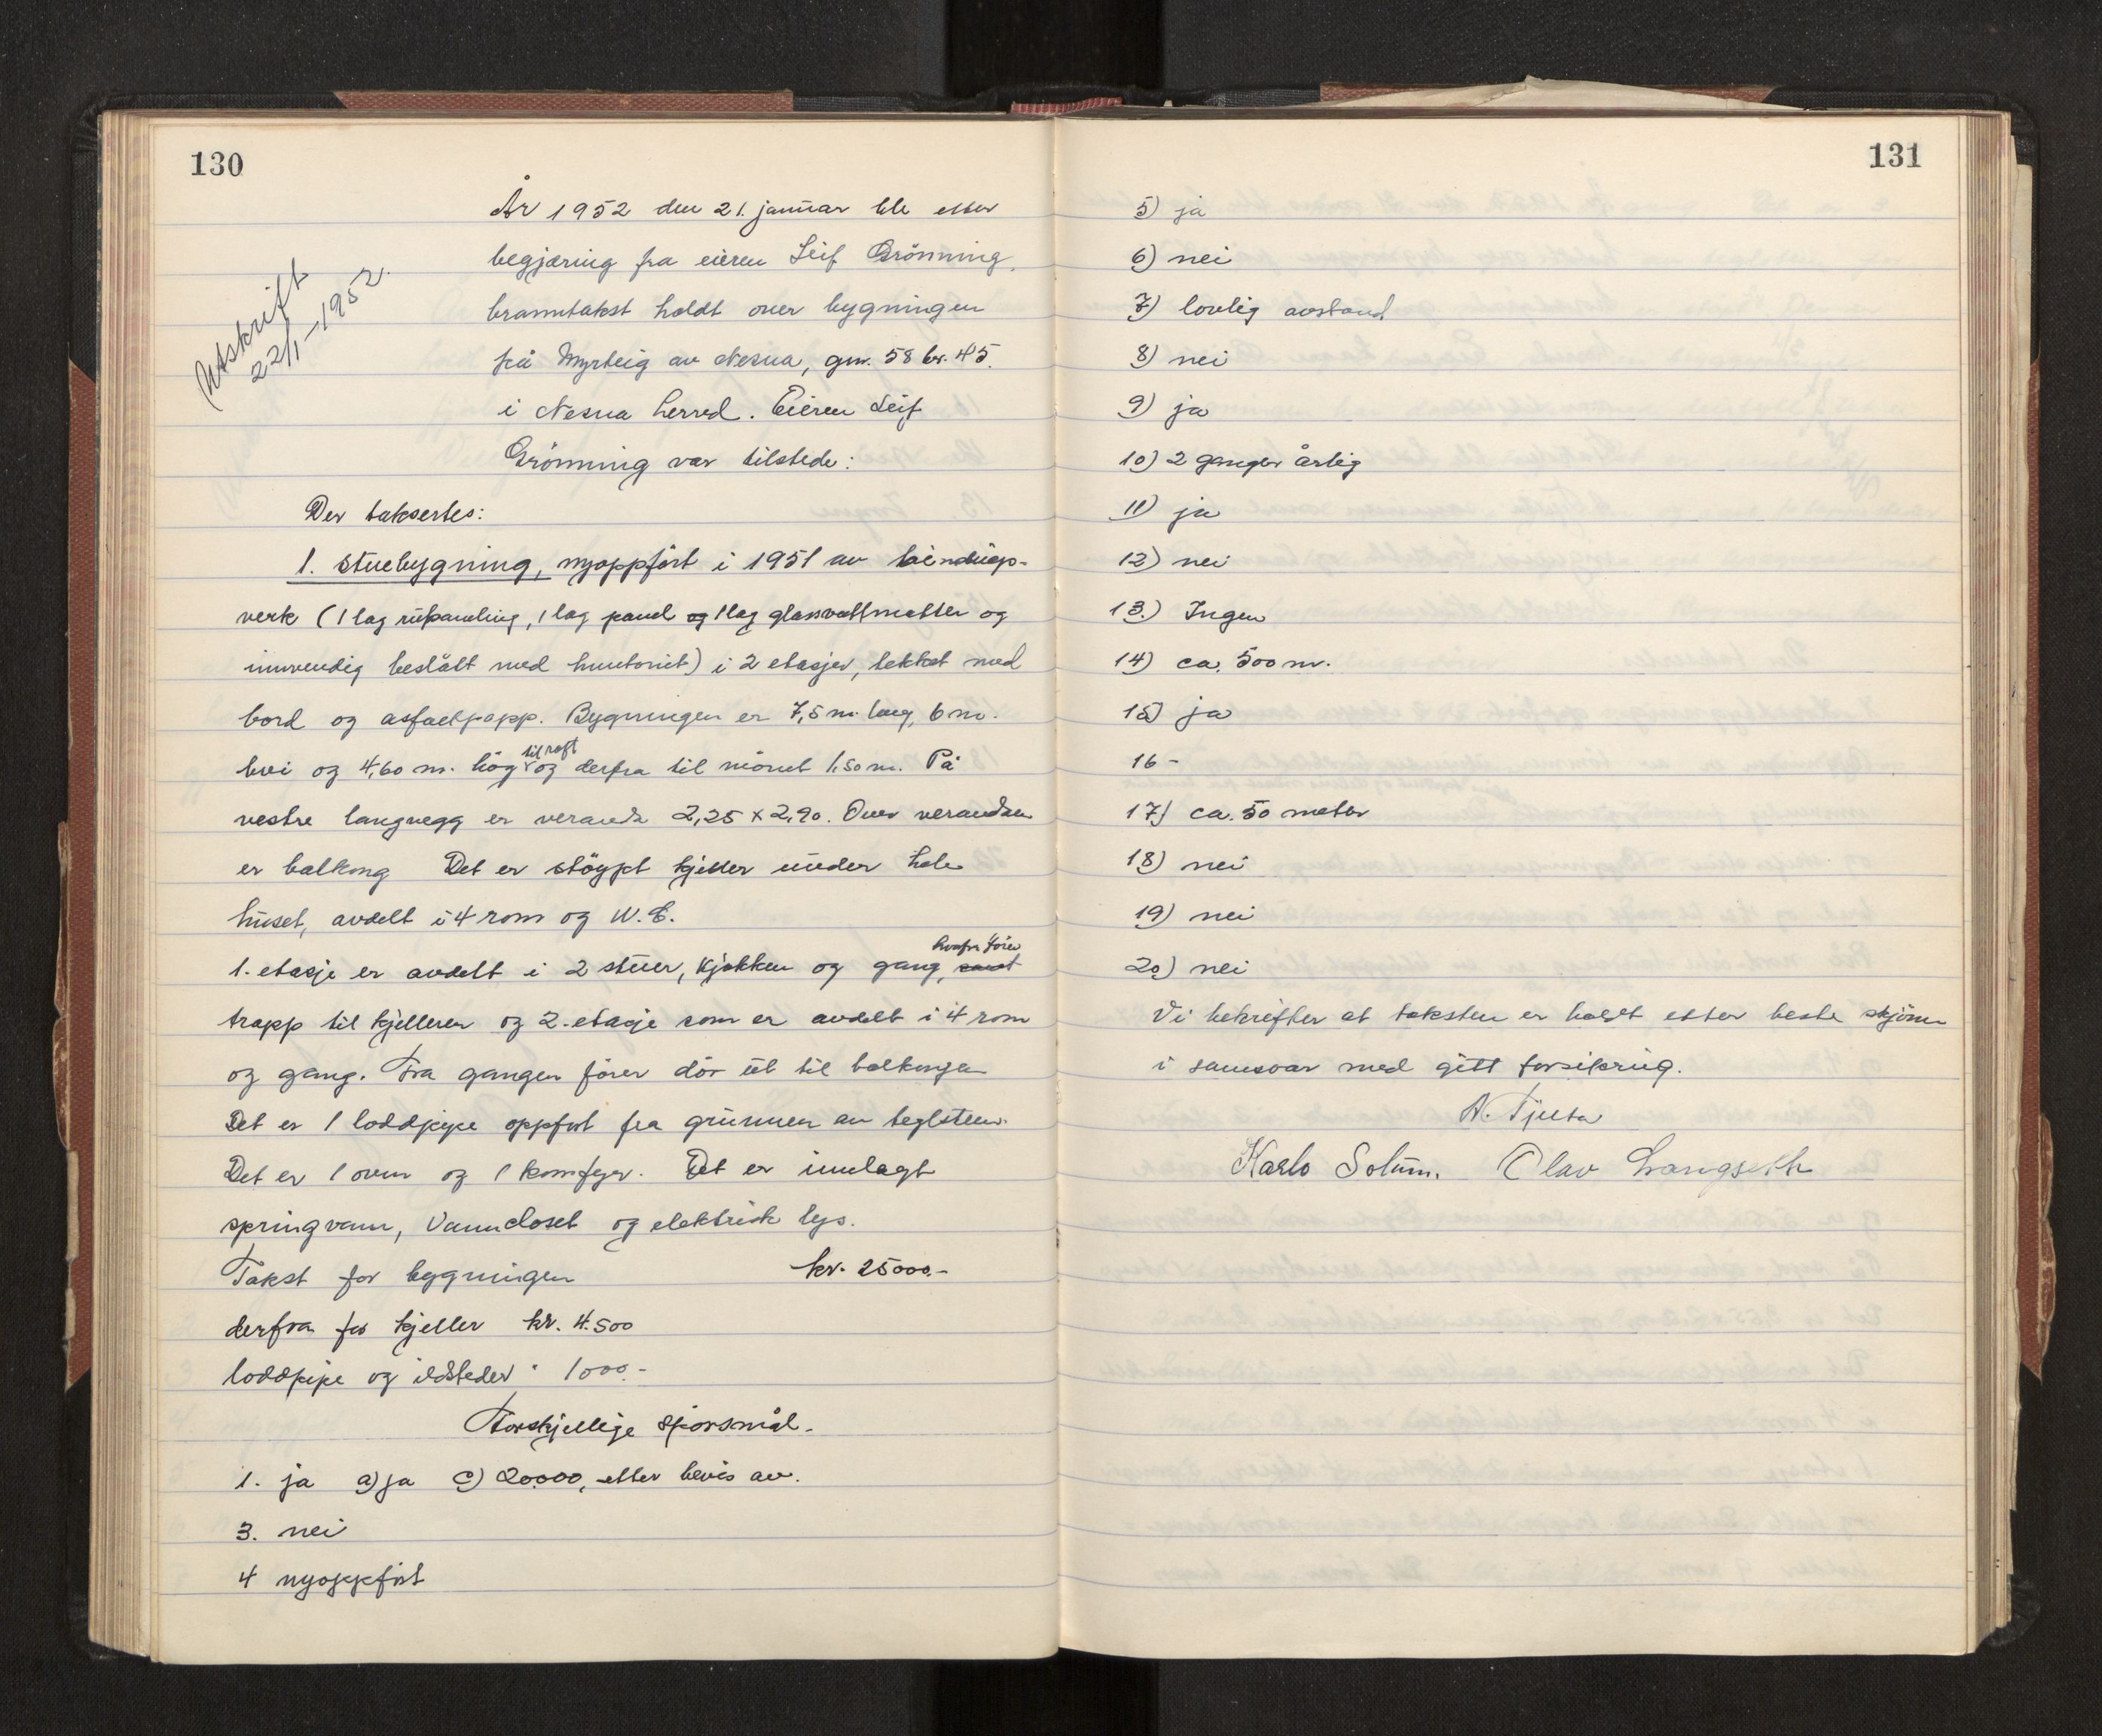 130
År 1952 den 21. januar ble etter
begjæring fra eieren Leif Grönning,
branntakst holdt over bygningen
på Myrteig av Nesna, gnr. 58 br. 45.
i Nesna herred. Eieren Leif
Grönning var tilstede:
Utskrift
22/1-1952.
Der taksertes:
1. Stuebygning, nyoppfört i 1951 av bindings-
verk (1 lag rupanling, 1 lag panel og 1 lag glassvattmatter og
innvendig beslått med huntonit) i 2 etasjer, tekket med
bord og asfaltpapp. Bygningen er 7,5 m. lang, 6 m.
brei og 4,60 m. hög til raft og derfra til mönet 1.50 m. På
vestre langvegg er veranda 2,25 x 2,90. Over verandaen
er balkong Det er stöypt kjeller under hele
huset, avdelt i 4 rom og W.C.
1. etasje er avdelt i 2 stuer, kjökken og gang, samt hvorfra förer
trapp til kjelleren og 2. etasje som er avdelt i 4 rom
og gang. Fra gangen förer dör ut til balkongen
Det er 1 loddpipe oppfört fra grunnen av teglsten.
Det er 1 ovn og 1 komfyr. Det er innlagt
springvann, Vanncloset og elektrisk lys.
Takst for bygningen kr. 25000.-
derfra for kjeller kr. 4.500
loddpipe og ildsteder " 1000.-
Forskjellige spörsmål.
1. ja a) ja c) 20.000, etter bevis av.
3. nei
4 nyoppfört
131
5) ja
6) nei
7) lovlig avstand
8) nei
9) ja
10) 2 ganger årlig
11) ja
12) nei
13.) Ingen
14) ca. 500 m.
15) ja
16 -
17) ca. 50 meter
18) nei
19) nei
20) nei
Vi bekrefter at taksten er holdt etter beste skjönn
i samsvar med gitt forsikring.
A. Tjutta
Karlo Solum. Olav Langseth